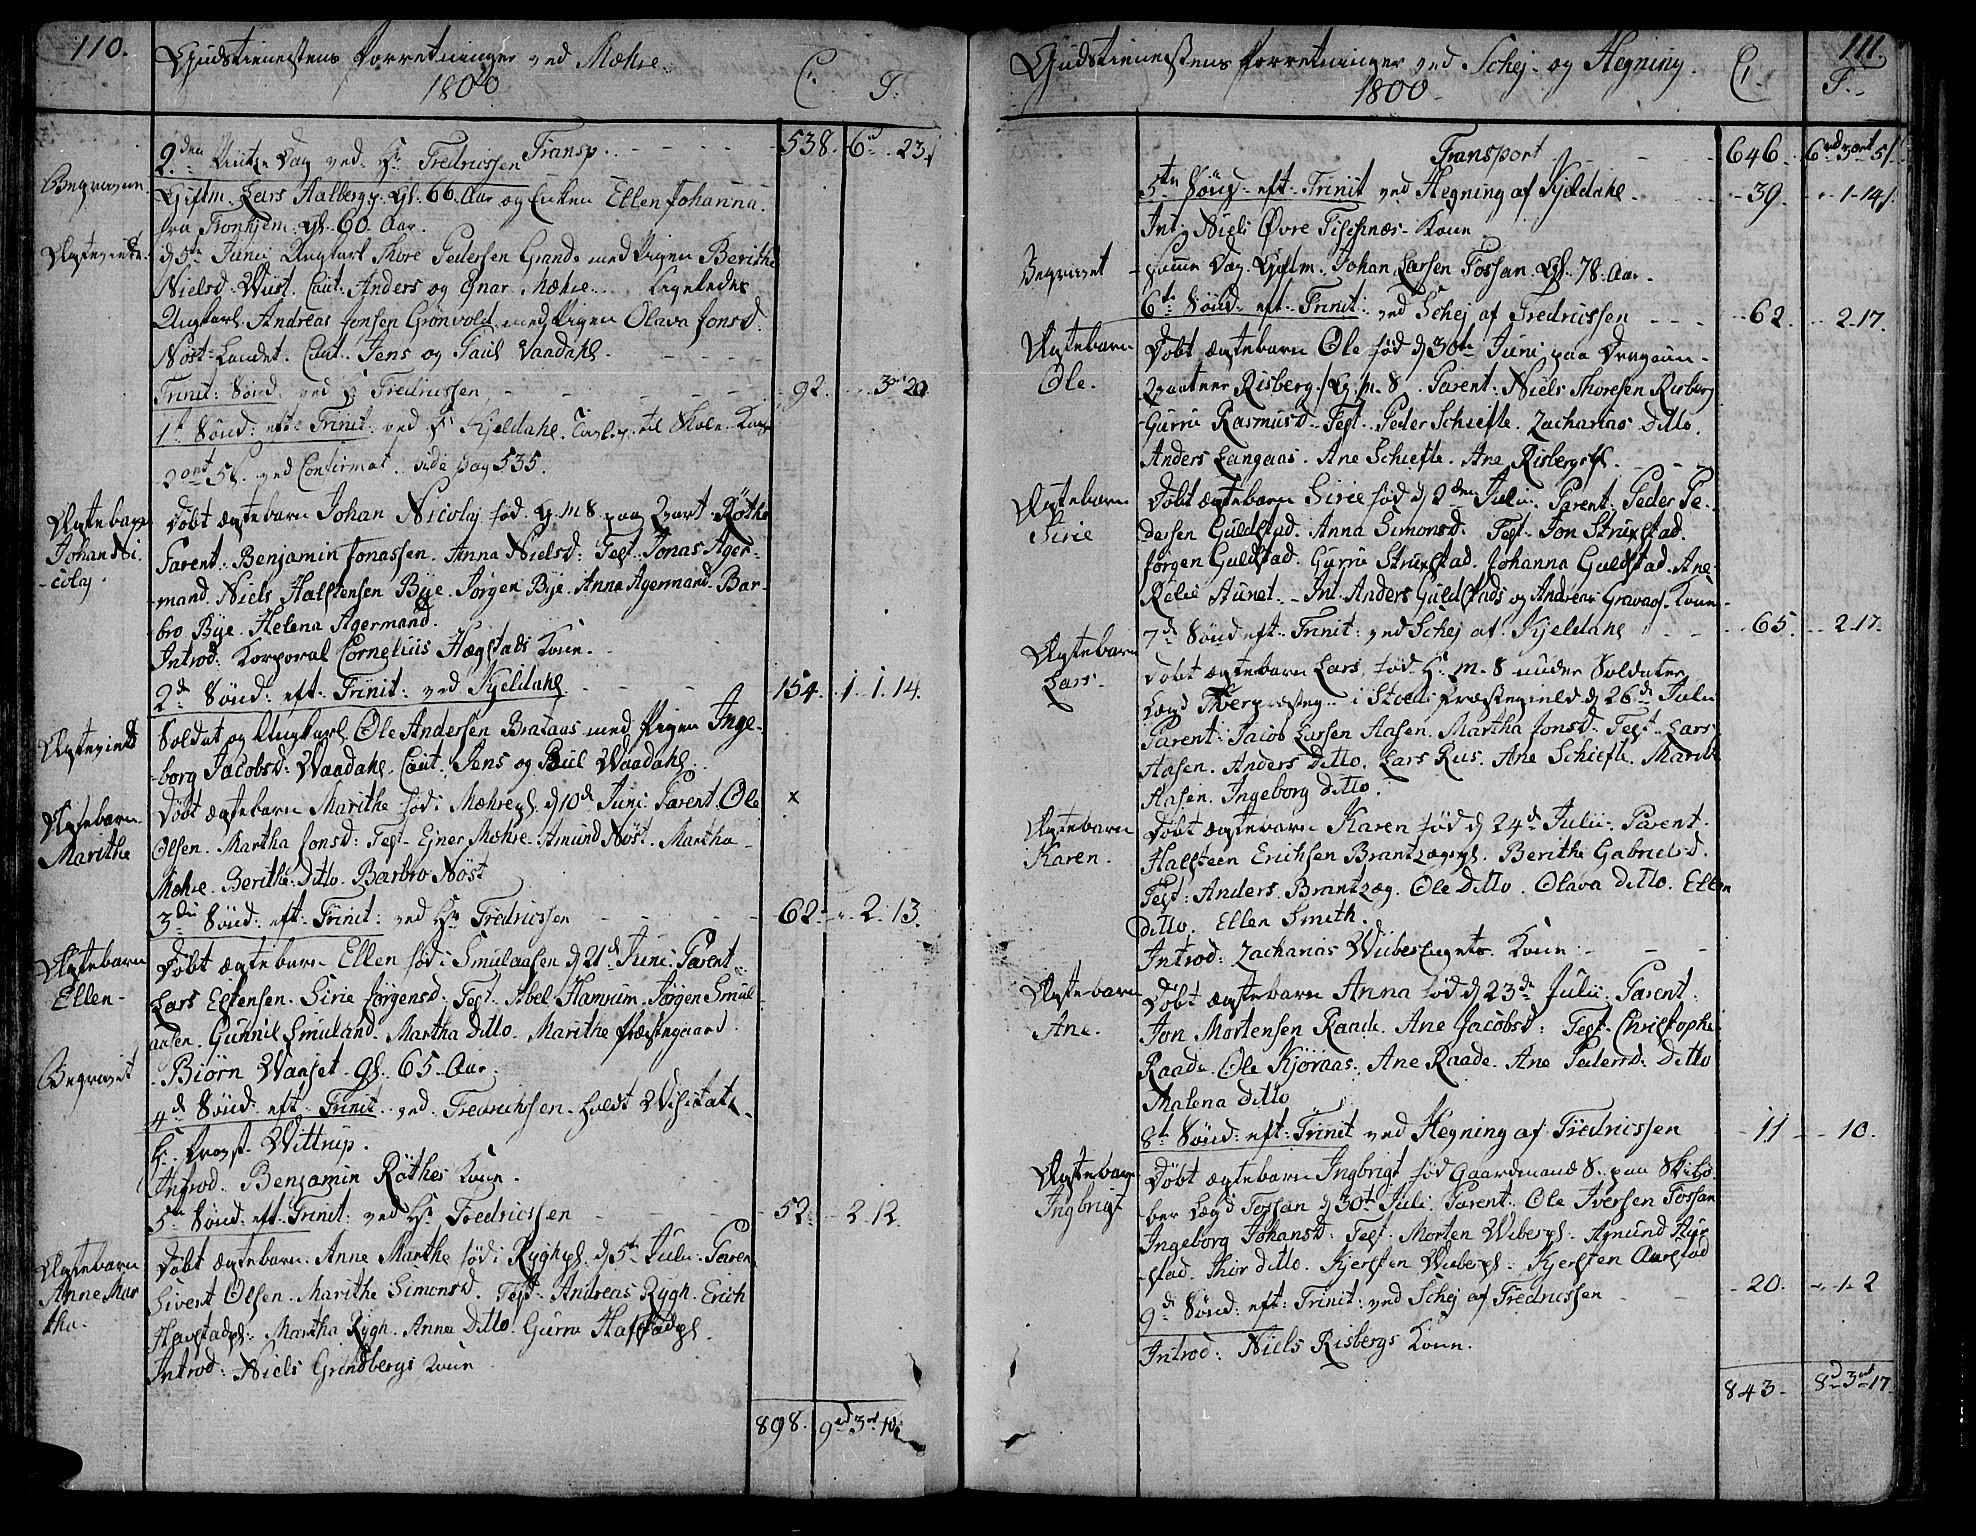 110.
Gudstienestens Forretninger ved Mæhre.
1800
C. T.
Transp. 538. 6 23
2den Pintse Dag ved Hr. Fredricssen
Begraven
Giftm. Lars Aalberg. Gl. 66 Aar og Enken Ellen Johanna.
fra Tronhjem. gl. 60. Aar.
Ægteviede
d 5te Junii Ungkarl Thore Pedersen Grande med Pigen Berithe
Nielsd. Wüst. Caut. Anders og Ejnar Mæhre. Ligeledes
Ungkarl Andreas Jonsen Grönvold med Pigen Olava Jonsd.
Nöst-Landet. Caut. Jens og Paul Vaadahl.
Trinit: Sönd. ved Hr Fredricssen 92. 3 20
1te Sönd: eft. Trinit: ved Hr Kjeldahl. til Skole-
2ort 5s. ved Confirmat. vide pag 535.
Ægtebarn
Johan Ni-
colaj.
Döbt ægtebarn Johan Nicolaj föd G. M S. paa Qvart. Röthe
Parent: Benjamin Jonassen. Anna Nielsd: Test. Jonas Ager-
mand. Niels Halstensen Bye. Jörgen Bye. Anne Agermand. Bar-
bro Bye. Helena Agermand.
Introd: Korporal Cornelius Hægstads Kone.
2d Sönd: eft. Trinit: ved Kjeldahl 154. 1. 1. 14.
Ægteviet
Soldat og Ungkarl Ole Andersen Brataas med Pigen Inge-
borg Jacobsd: Waadahl. Caut. Jens og Paul Waadahl.
Ægtebarn
Marithe
Döbt ægtebarn Marithe föd i Mæhregl. d 10de Juni. Parent. Ole x
Olsen. Martha Jonsd: Test. Ejner Mæhre. Amund Nöst. Martha
Mæhre. Berithe Ditto. Barbro Nöst
3die Sönd: eft. Trinit: ved Hr Fredricssen 62. 2. 13.
Ægtebarn
Ellen
Döbt ægtebarn Ellen föd i Smulaasen d 21de Juni. Parent.
Lars Estensen. Sirie Jörgensd: Test. Abel Hamrum. Jörgen Smul-
aasen. Gunnil Smuland. Martha Ditto. Marithe Præstegaard.
Begravet
Biörn Waaset. gl. 65. Aar.
4de Sönd: eft. Trinit. ved Fredrichssen. holdt Visitats
Hr. Provst. Wittrup.
Introd. Benjamin Röthes Kone.
5te Sönd: eft. Trinit: ved Hr Fredricssen 52. 2. 12.
Ægtebarn
Anne Mar
tha.
Döbt ægtebarn. Anne Marthe föd i Ryghgl. d 5te Julii. Paren.
Sivert Olsen. Marithe Simonsd. Test. Andreas Rygh. Erich
Havstadgl. Martha Rygh. Anne Ditto. Gurru Hafstadgl.
Introd: Niels Grindbergs Kone
898. 9rd 3ort 10
111.
Gudstienestens Forretninger ved Schej- og Hegning.
1800.
C. T.
Transport 646. 6rd 3ort 5s.
5te Sönd: eft. Trinit ved Hegning af Kjeldahl 39. 1. 14s.
Int. Niels Övre Fischnæs. Kone
Begravet
samme Dag. Giftm. Johan Larsen Fossan. Gl. 78. Aar.
6te Sönd: eft. Trinit: ved Schej af Fredricssen 62. 2. 17.
Ægtebarn
Ole.
Döbt ægtebarn Ole föd d 30te Juni paa Dragoun-
Qvarteer Risberg. G. M. S. Parent: Niels Thoresen Risberg
Gurru Rasmusd. Test. Peder Schiefte. Zacharias Ditto.
Anders Langaas. Ane Schiefte. Ane Risbergsgl.
Ægtebarn
Sirie
Döbt ægtebarn Sirie föd d 2den Julii. Parent: Peder Pe-
dersen Guldstad. Anna Simonsd. Test. Jon Struxstad.
Jörgen Guldstad. Gurru Struxstad. Johanna Guldstad. Ane
Relie Aunet. Int. Anders Guldstads og Andreas Gravaas. Kone
7de Sönd eft. Trinit: ved Schej af Kjeldahl 65. 2. 17.
Ægtebarn
Lars.
Döbt ægtebarn Lars, föd H. M. S under Soldater
Lægd i Stods Præstegield d 26de Julii
Parent: Jacob Larsen Aasen. Martha Jonsd. Test. Lars
Aasen. Anders Ditto. Lars Rus. Ane Schiefte. Marith
Aasen. Ingeborg Ditto.
Ægtebarn
Karen.
Döbt ægtebarn Karen föd d 24de Julii. Parent.
Halsteen Erichsen Brantzægsgl. Berithe Gabrielsd.
Test: Anders Brantzæg. Ole Ditto. Olava Ditto. Ellen
Ditto. Ellen Smith.
Introd: Zacharias Wiiberegnets. Kone
Ægtebarn
Ane.
Döbt ægtebarn Anna föd d 23de Julii. Parent.
Jon Mortensen Raade. Ane Jacobsd: Test. Christopher
Raade. Ole Kjöraas. Ane Raade. Ane Pedersd. Ditto
Malena Ditto
8de Sönd: eft. Trinit ved Hegning af Fredricssen 11 10.
Ægtebarn
Ingbrigt
Döbt ægtebarn Ingbrigt föd Gaardmand S. paa Skilö-
ber Lægd Fossan d 30te Juli. Parent. Ole Iversen Fossan
Ingeborg Johansd: Test. Morten Wibergl. Asmund Aur-
stad. Thor Ditto. Kjersten Wibergl. Kjersten Aurstad
9de Sönd: eft: Trinit: ved Schej af Fredricssen 20. 1. 2
Introd: Niels Risbergs Kone.
843. 8rd 3ort 17.